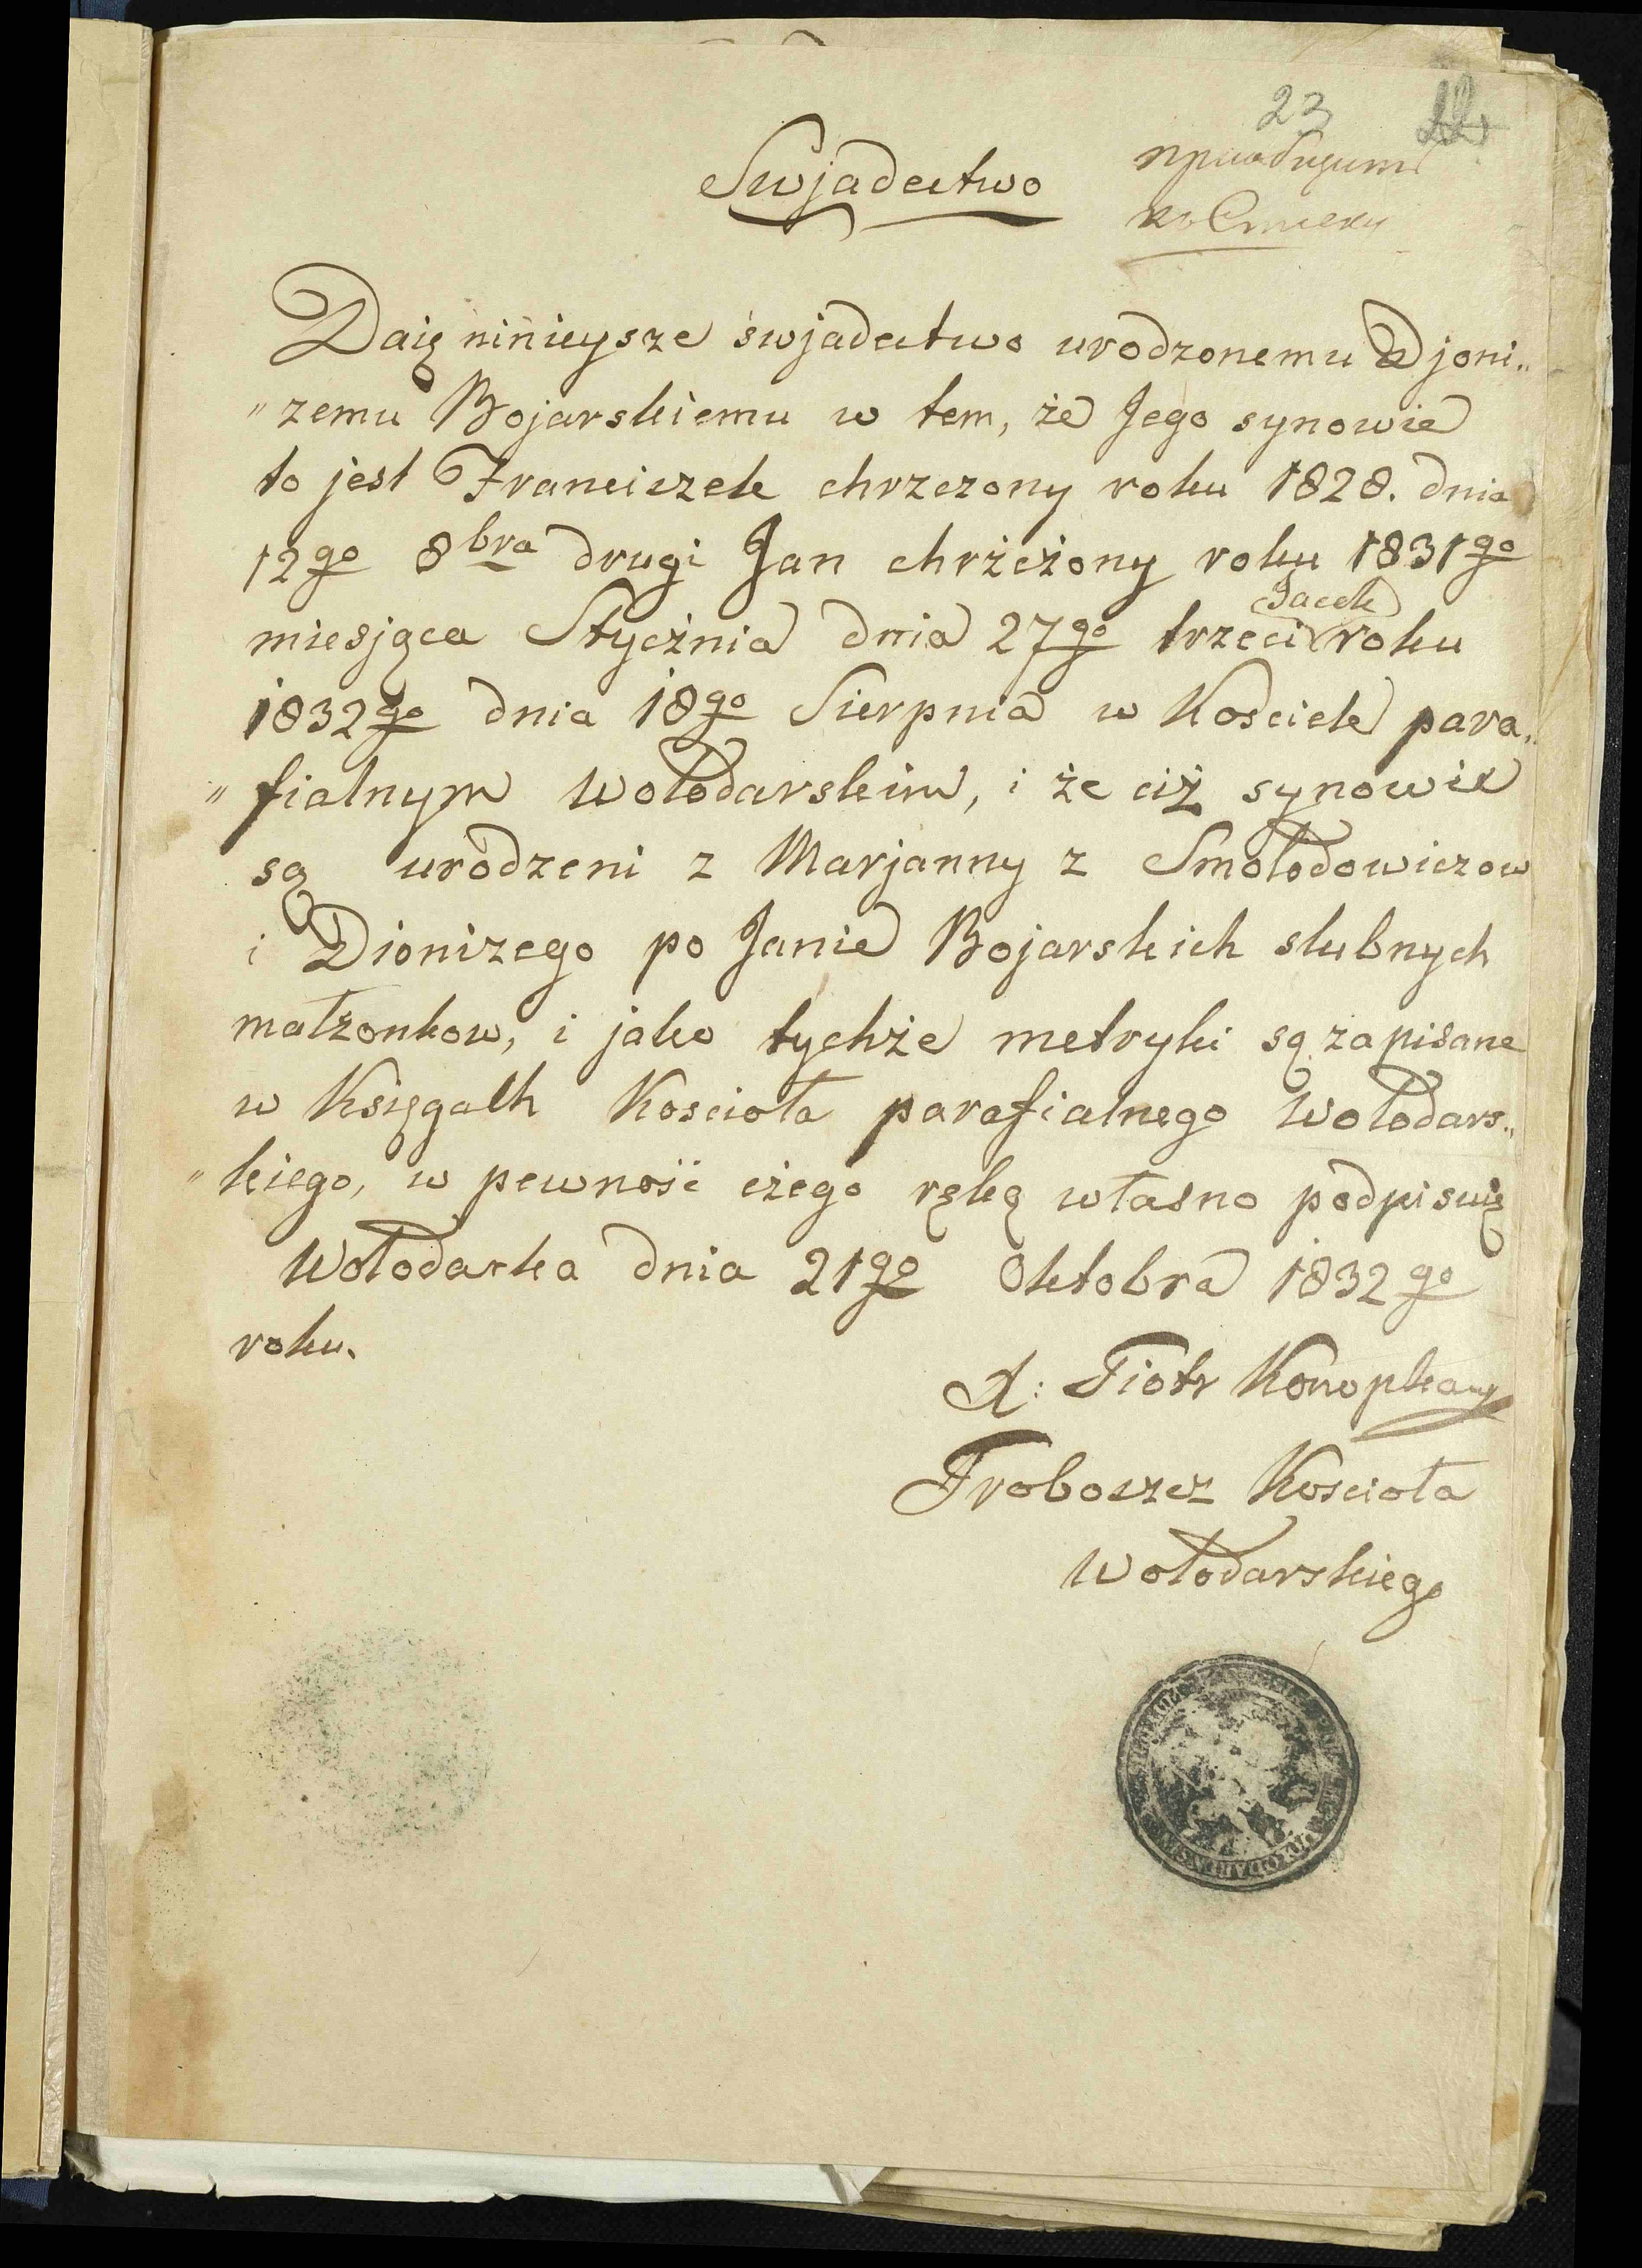 23
Swjadectwo
Daię ninieysze świadectwo urodzonemu Djoni„
„zemu Bojarskiemu w tem, że Jego synowie
to jest Franciszek chrzczony roku 1828. dnia
12go 8bra drugi Jan chrżcżony roku 1831go
miesjąca Stycżnia dnia 27go trzeci Jacek roku
1832go dnia 18go Sierpnia w Kosciele para„
„fialnym Wołodarskim, i że ciż synowie
są urodzeni z Marjanny z Smołodowiczow
i Dionizego po Janie Bojarskich slubnych
małzonkow, i jako tychże metryki są zapisane
w Księgach Koscioła parafialnego Wołodars„
„kiego, w pewność cżego ręką własno podpisuię
Wołodarka dnia 21go Oktobra 1832go
roku.
X: Piotr Konopka
Proboszcz Koscioła
Wołodarskiego